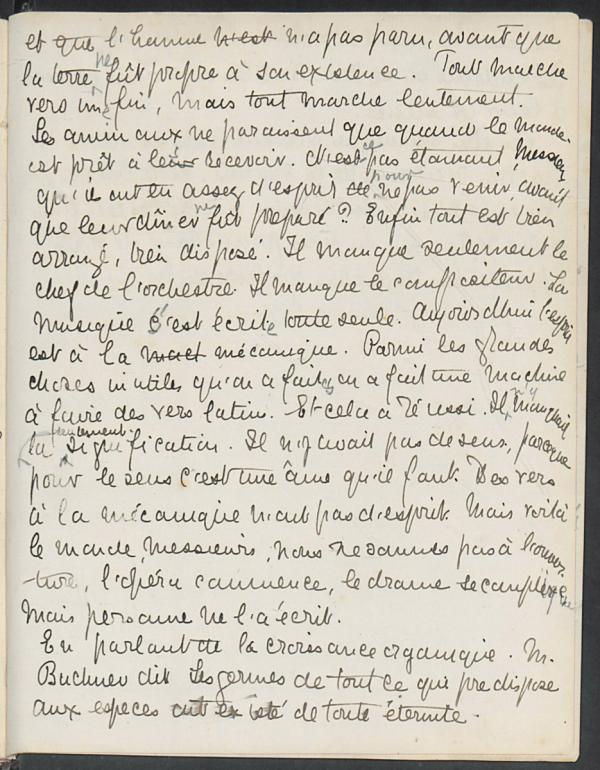 et que l'homme n'est n'a pas paru, avant que
la terre ne fût propre à son existence. Tout marche
vers une fin, mais tout marche lentement.
Les animaux ne paraissent que quand le monde
est prêt à les recevoir. N'est ce pas étonnant, Messieurs
qu'ils ont eu assez d'esprit de pour ne pas venir, avant
que leur dîner ne fût preparé? Enfin tout est bien
arrangé, bien disposé. Il manque seulement le
chef de l'orchestre. Il manque le compositeur. La
musique s'est écrite toute seule. Aujourdhui l'esprit
est à la mact mécanique. Parmi les grandes
choses inutiles qu'on a faites, on a fait une machine
à faire des vers latins. Et cela a réussi. Il y manquait
seulement
la signification. Il n'y avait pas de sens, parceque
pour le sens c'est une âme qu'il faut. Des vers
à la mécanique n'ont pas d'esprit. Mais voilà
le monde, Messieurs, nous ne sommes pas à l'ouver-
ture, l'opéra commence, le drame se complique
Mais personne ne l'a écrit.
En parlant de la croissance organique. M.
Buchner dit Les germes de tout ce qui predispose
aux especes ont existé de toute éternite.